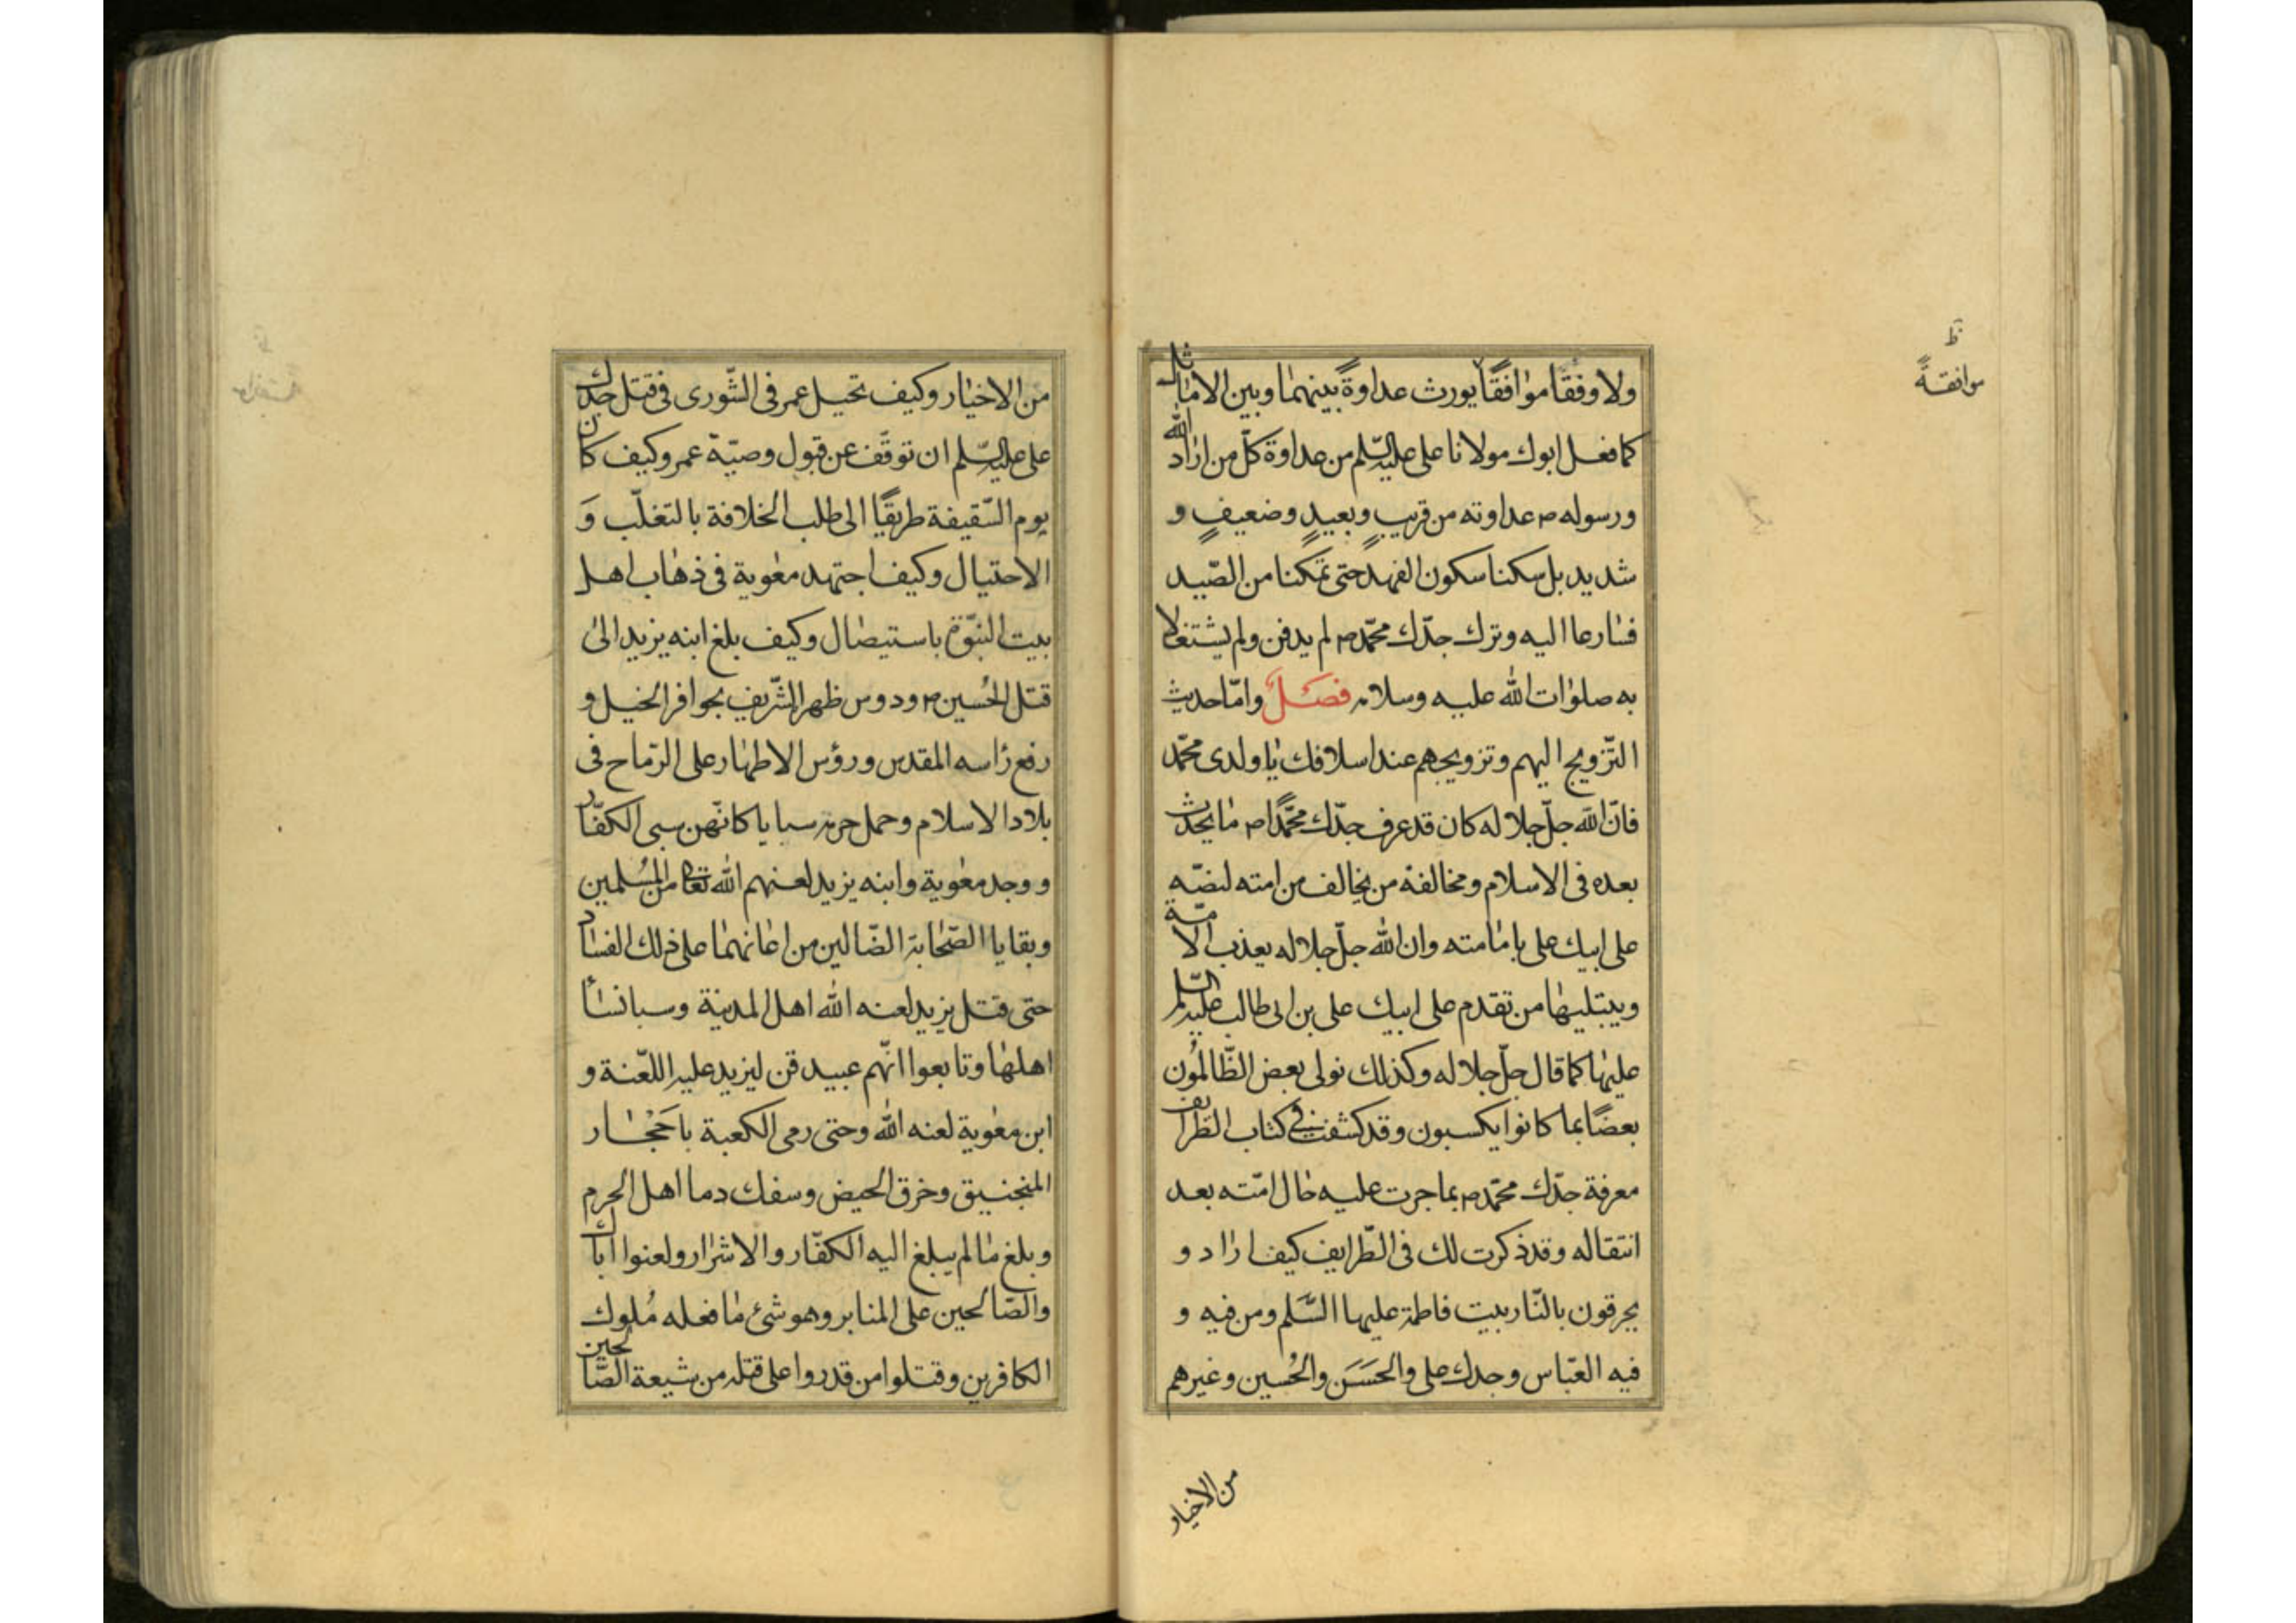 ولا وفقًا موافقًا يورث عداوةً بينهما وبين الاماثل
كما فعل ابوك مولانا على عليه السّلم من عداوة كلّ من اراد الله
ورسوله ص عداوته من قريبٍ وبعيدٍ وضعيفٍ و
شديد بل سكنا سكون الفهد حتى تمكنا من الصّيد
فسارعا اليه وترك جدّك محمّد ص لم يدفن ولم يشتغلا
به صلوات الله عليه وسلامه فصل وامّا حديث
التّزويج اليهم وتزويجهم عند اسلافك يا ولدى محمّد
فانّ الله جلّ جلاله كان قد عرف جدّك محمّدًا ص ما يحدث
بعده فى الاسلام ومخالفة من يخالف من امته لنصّه
على ابيك على بامامته وان الله جلّ جلاله يعذب الامّة
ويبتليها من تقدم على ابيك على بن ابى طالب عليه السّلم
عليها كما قال جلّ جلاله وكذلك نولى بعض الظّالمون
بعضًا بما كانوا يكسبون وقد كشفت فى كتاب الطرايف
معرفة جدّك محمّد ص بما جرت عليه حال امّته بعد
انتقاله وقد ذكرت لك فى الطّرايف كيف اراد و
يحرقون بالنّار بيت فاطمة عليها السّلم ومن فيه و
فيه العبّاس وجدك على والحَسَن والحُسين وغيرهم
من الاخيار
ظ
موافقةً
من الاخيار وكيف تحيل عمر فى الشّورى فى قتل جدك
على عليه السّلم ان توقّف عن قبول وصيّة عمر وكيف كان
يوم السّقيفة طريقًا الى طلب الخلافة بالتغلّب وَ
الاحتيال وكيف اجتهد معوية فى ذهاب اهل
بيت النبّوة باستيصال وكيف بلغ ابنه يزيد الى
قتل الحُسين ص ودوس ظهره الشّريف بحوافر الخيل و
رفع راسه المقدس ورؤس الاطهار على الرّماح فى
بلاد الاسلام وحمل حرمه سبايا كانّهن سبى الكفّار
ووجد معوية وابنه يزيد لعنهم الله تعالى من المُسلمين
وبقايا الصّحابة الضّالين من اعانهما على ذلك الفساد
حتى قتل يزيد لعنه الله اهل المدينة وسبا نسأ
اهلها وتابعوا انّهم عبيد قن ليزيد عليه اللّعنة و
ابن معوية لعنه الله وحتى رمى الكعبة باحَجْار
المنجنيق وخرق الحيض وسفك دما اهل الحرم
وبلغ ما لم يبلغ اليه الكفّار والاشرار ولعنوا اباك
والصّالحين على المنابر وهو شئ ما فعله مُلوك
الكافرين وقتلوا من قدروا على قتله من شيعة الصّالحين